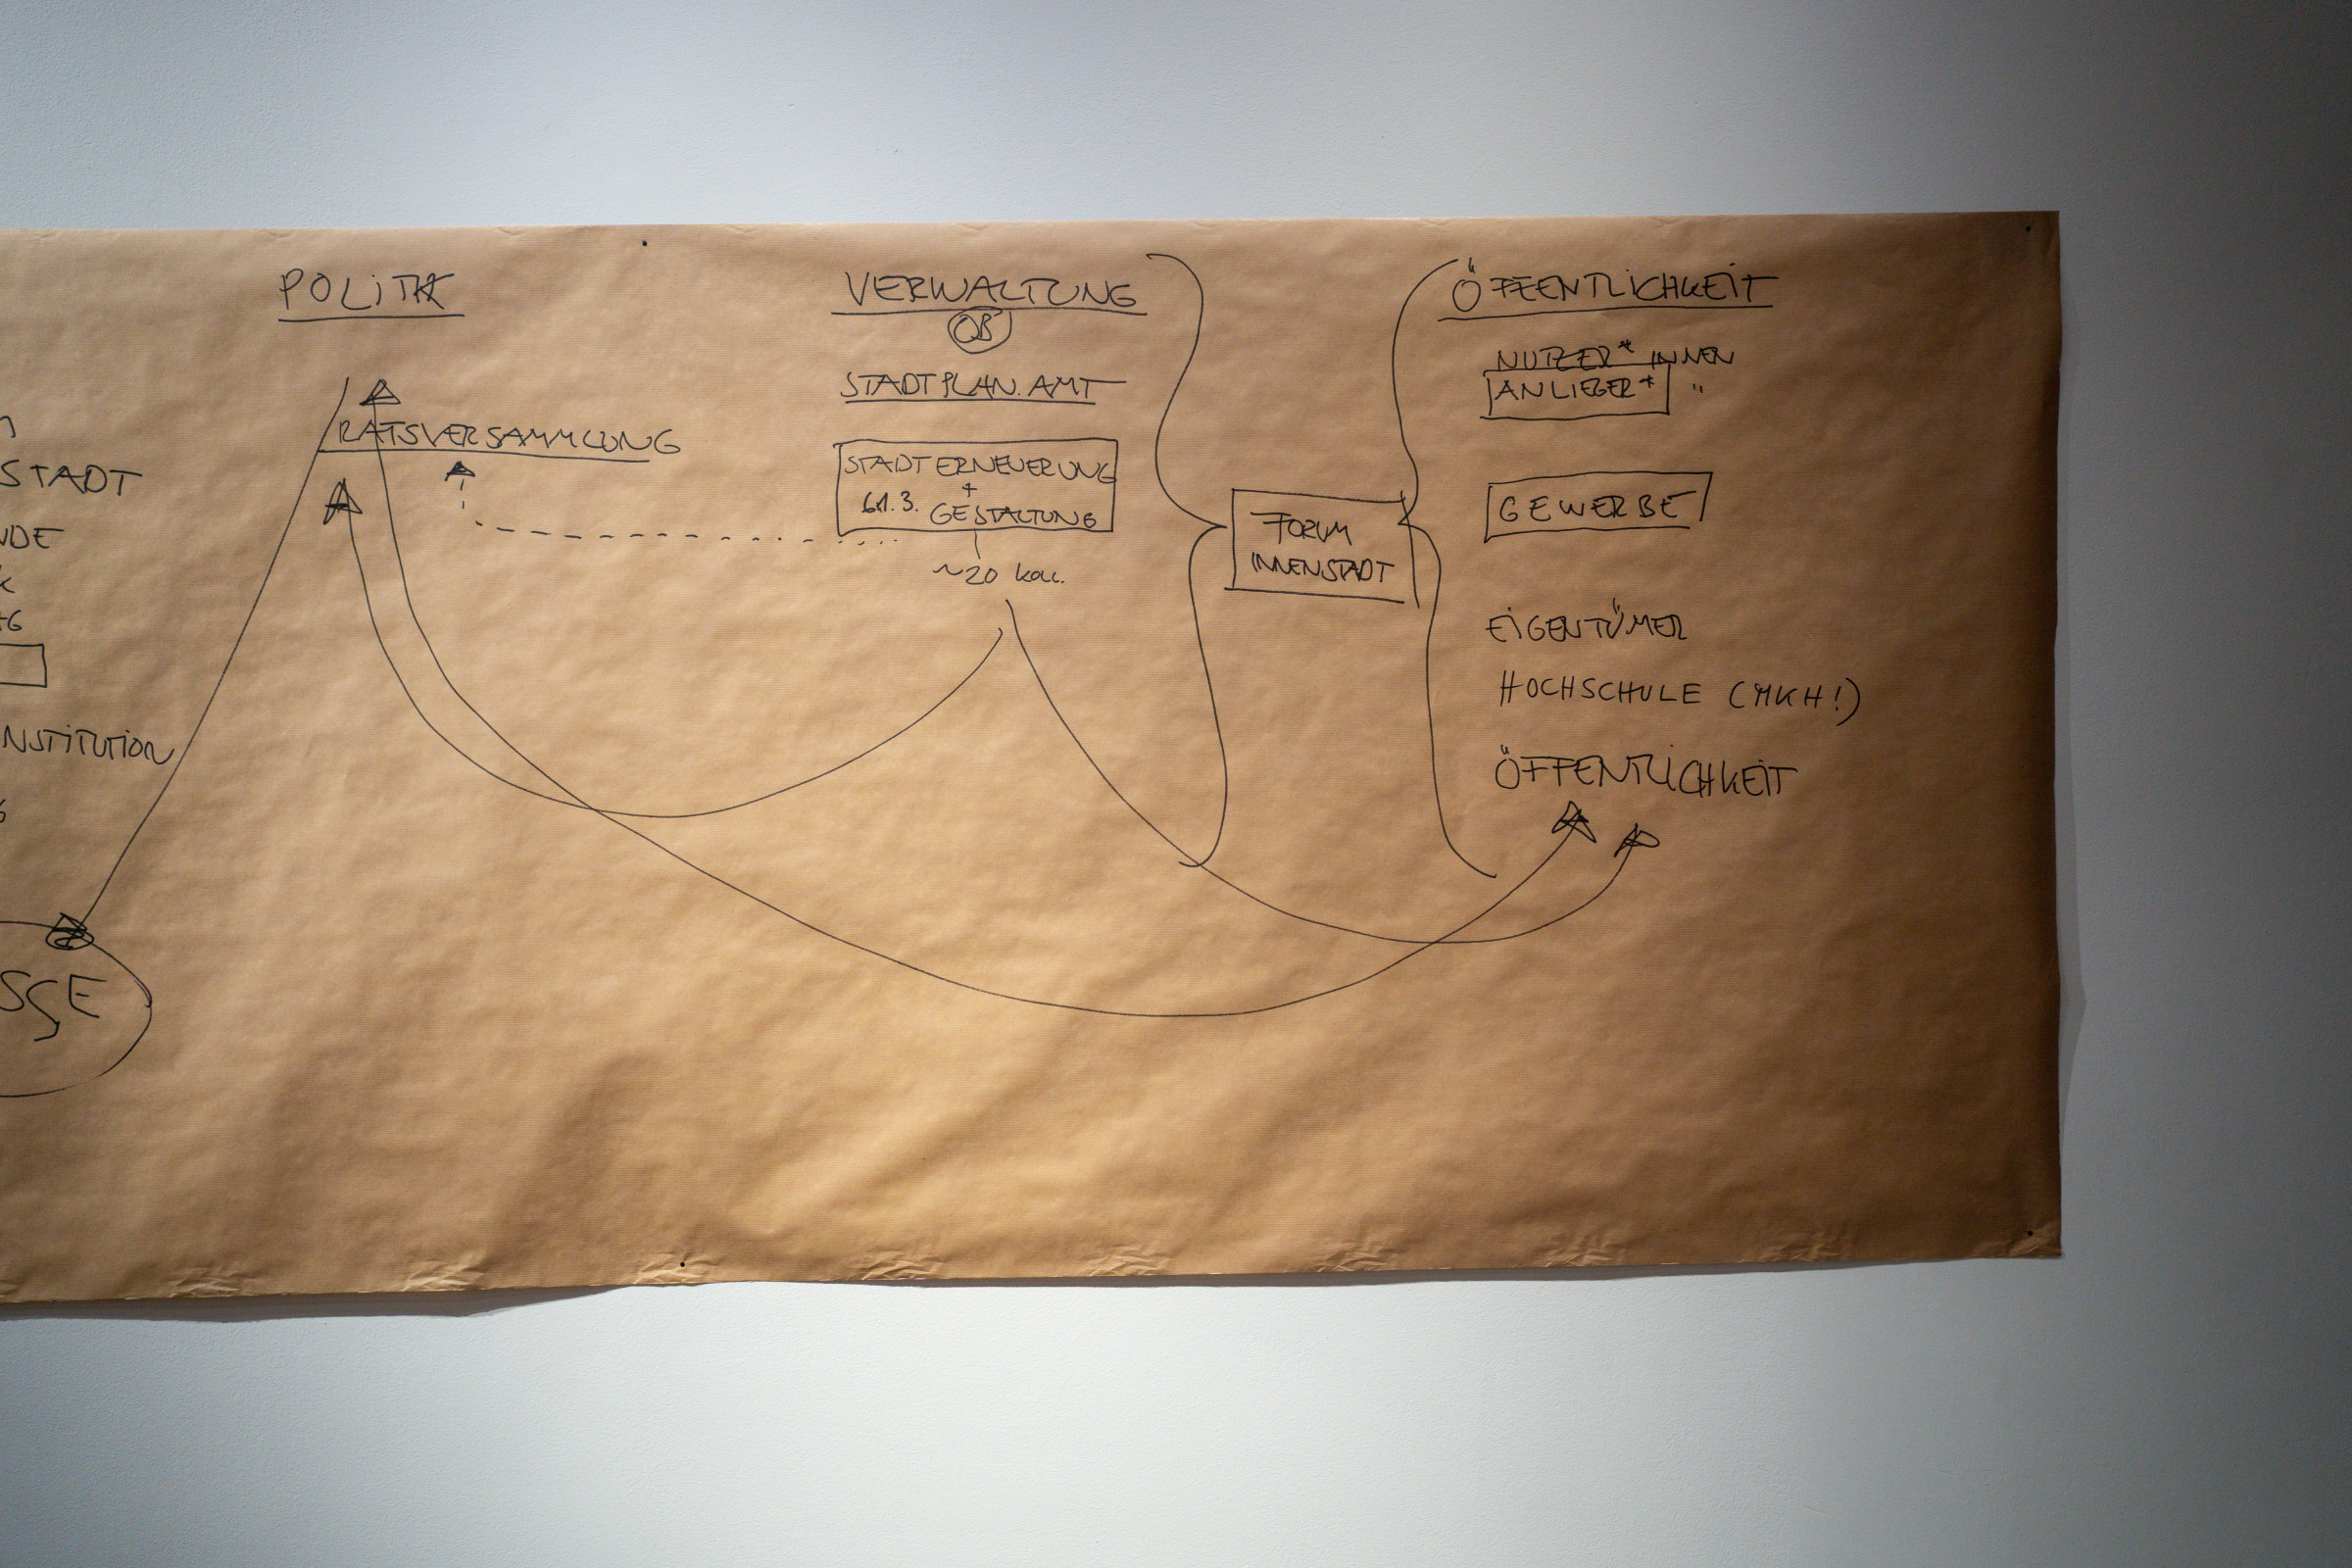 STADT
POLITIK
RATSVERSAMMLUNG
VERWALTUNG
OB
STADTPLAN. AMT
STADTERNEUERUNG
+
61.3. GESTALTUNG
~20 Koll.
FORUM
INNENSTADT
ÖFFENTLICHKEIT
NUTZER*INNEN
ANLIEGER* "
GEWERBE
EIGENTÜMER
HOCHSCHULE (MKH!)
ÖFFENTLICHKEIT
NSTITUTION
SSE